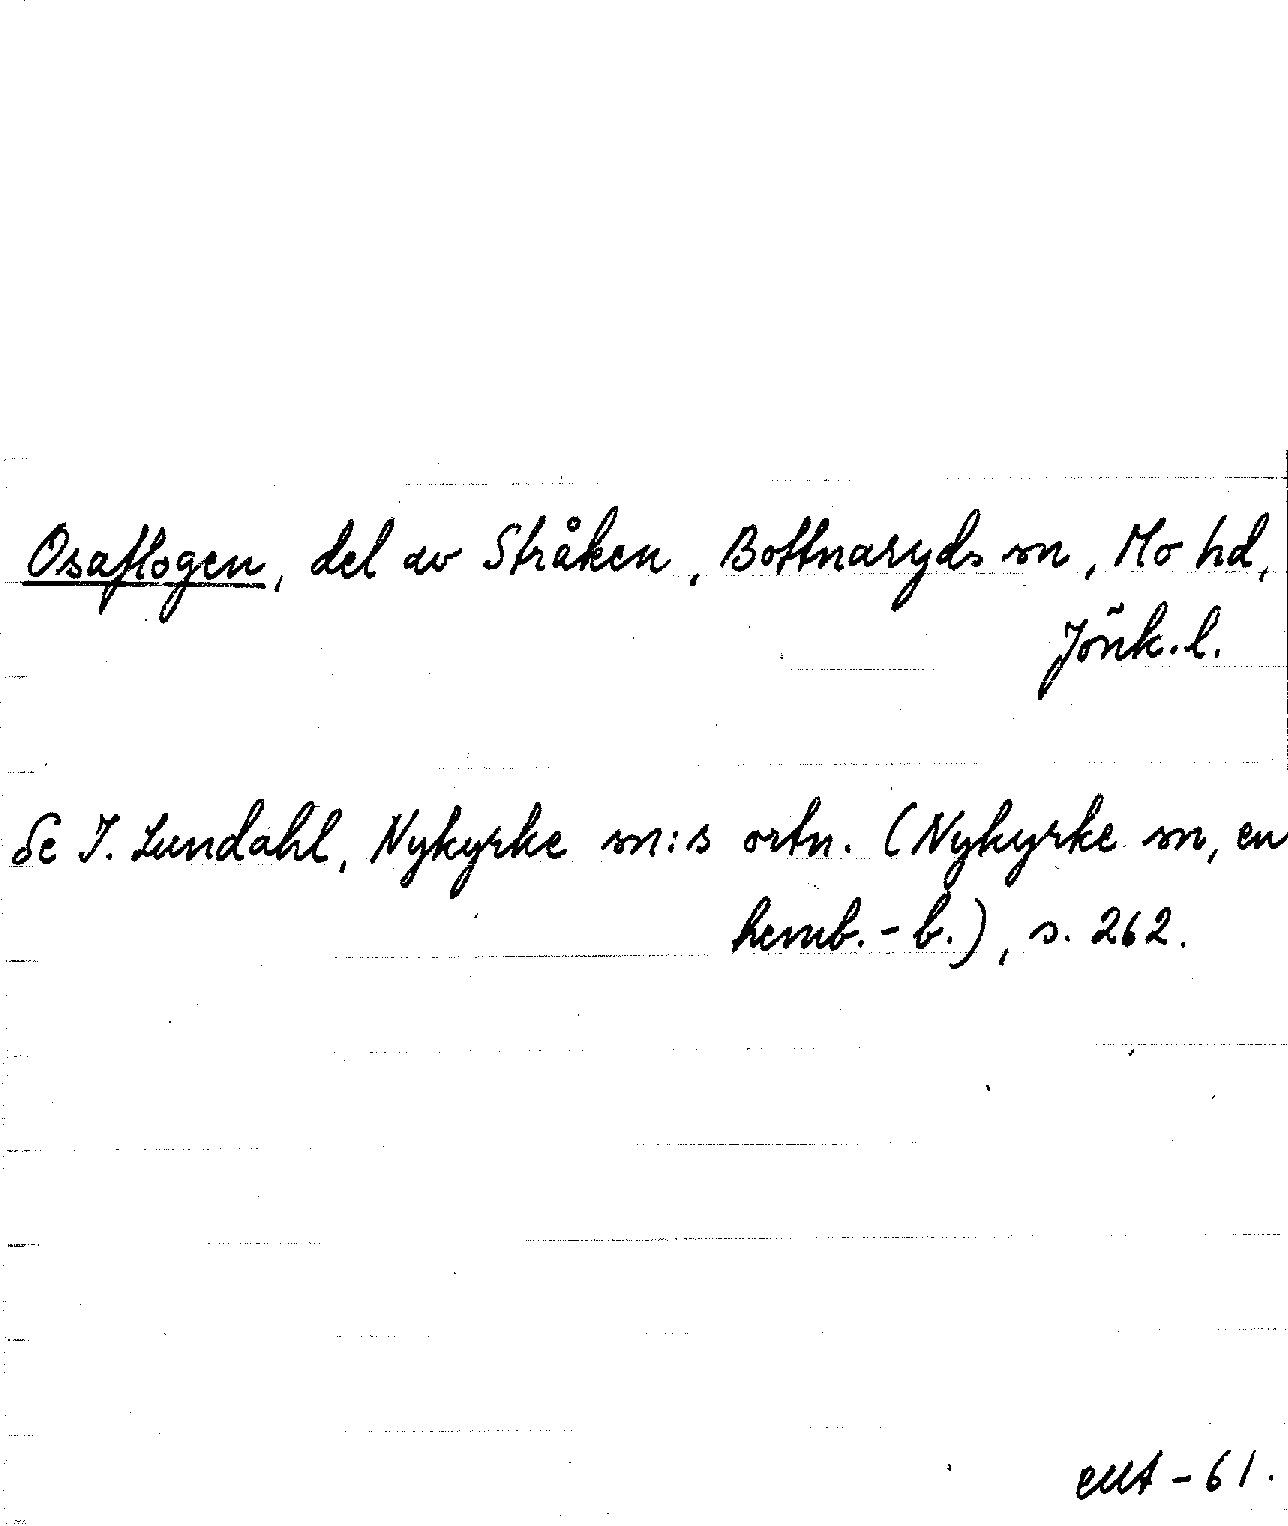 Osaflogen, del av Stråken, Bottnaryds sn, Mo hd,
Jönk. l.
Se I. Lundahl, Nykyrke sn:s ortn. (Nykyrke sn, en
hemb.-b.), s. 262.
-61.